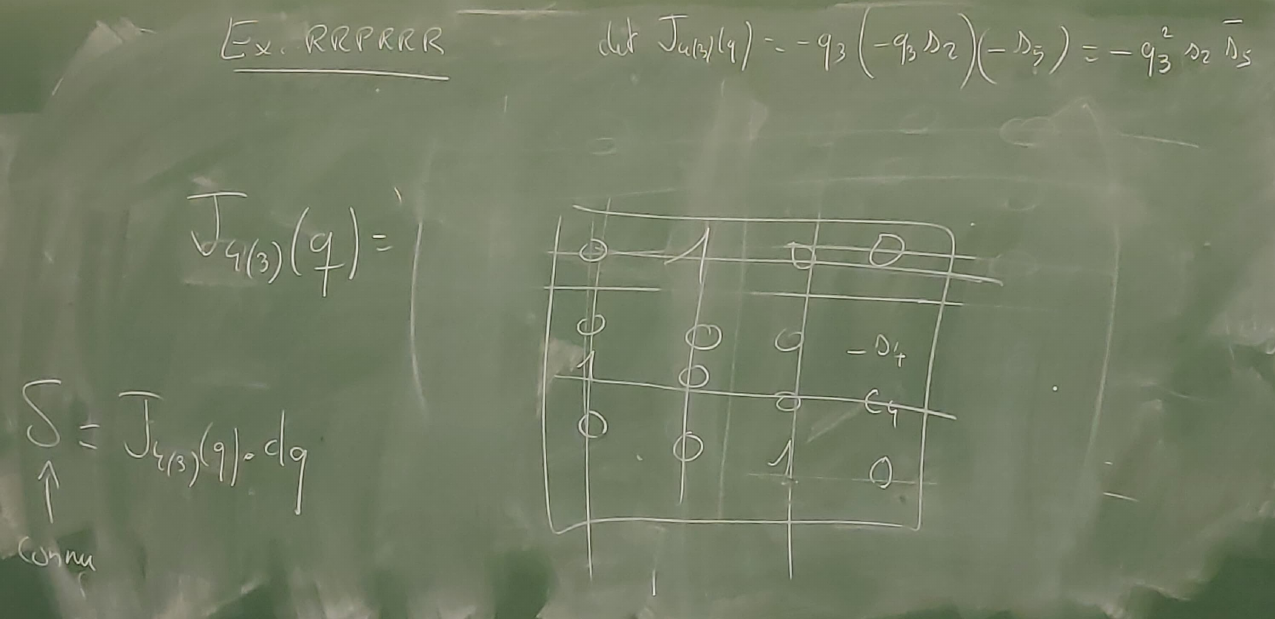 Ex. RRPRRR
det J₄₍₃₎(q) = -q₃(-q₃ s₂)(-s₅) = -q₃² s₂ s₅
J₄₍₃₎(q) =
0 1 0 0
0 0 0 -s₄
1 0 0 c₄
0 0 1 0
δ = J₄₍₃₎(q).dq
↑
connu